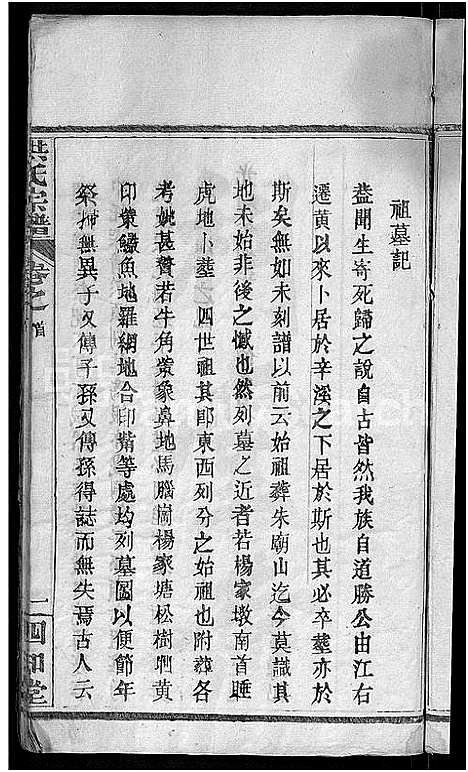 祖墓記
蓋聞生寄死歸之說自古皆然我族自道勝公由江右
遷黃以來卜居於辛溪之下居於斯也其必卒塟亦於
斯矣無如未刻譜以前云始祖葬朱廟山迄今莫識其
地未始非後之憾也然列墓之近者若楊家墩南首睡
虎地卜塟之四世祖其郎東西列分之始祖也附葬各
考妣甚贊若牛角象鼻地馬腦樹楊家塘松樹黃
印鱖魚地羅網地合印嘴等處均列墓圖以便節年
祭掃無異子又傳子孫又傳孫得誌而無失焉古人云
洪氏宗譜
卷之首
二
和堂